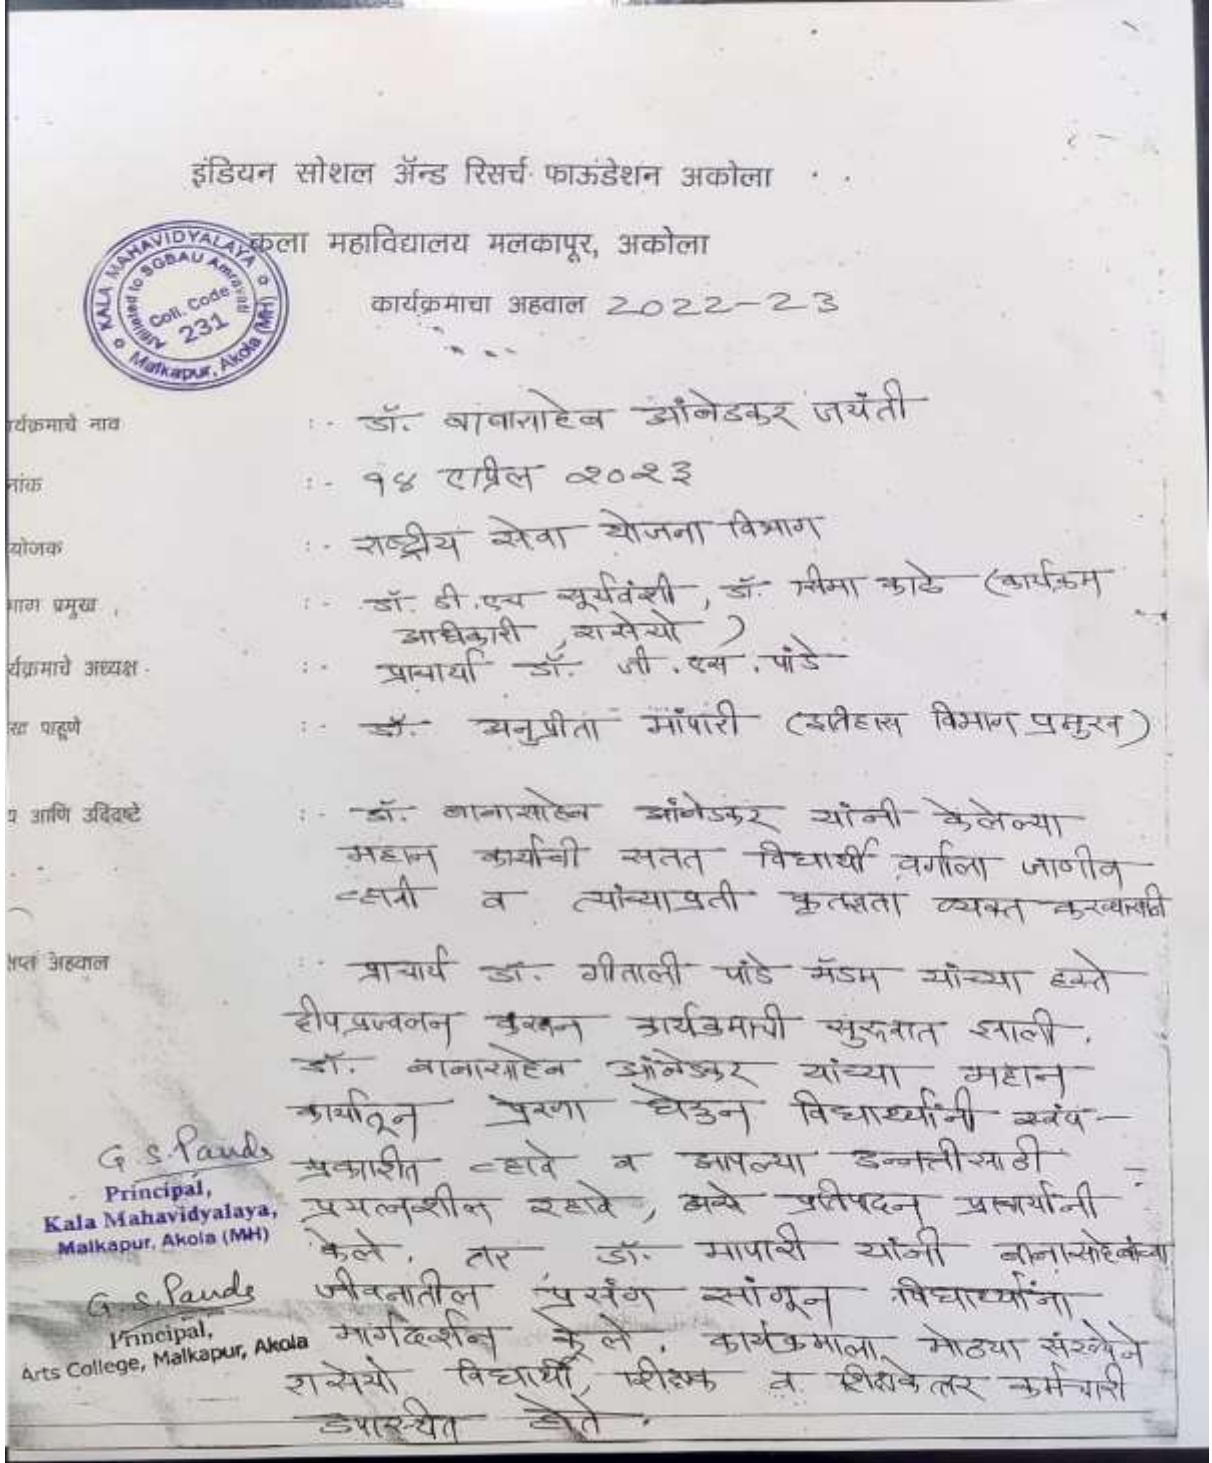 इंडियन सोशल ॲन्ड रिसर्च फाऊंडेशन अकोला
कला महाविद्यालय मलकापूर, अकोला
कार्यक्रमाचा अहवाल 2022-23
KALA MAHAVIDYALAYA
Affiliated to SGBAU Amravati
Coll. Code
231
Malkapur, Akola (MH)
र्यक्रमाचे नाव :- डॉ. बाबासाहेब आंबेडकर जयंती
नांक :- १४ एप्रिल २०२३
योजक :- राष्ट्रीय सेवा योजना विभाग
भाग प्रमुख :- डॉ. डी.एच सूर्यवंशी, डॉ. सीमा काटे (कार्यक्रम
अधिकारी, रासेयो)
र्यक्रमाचे अध्यक्ष :- प्राचार्या डॉ. जी.एस. पांडे
पाहूणे :- डॉ. अनुप्रीता मापारी (इतिहास विभाग प्रमुख)
आणि उदिदष्टे :- डॉ. बाबासाहेब आंबेडकर यांनी केलेल्या
महान कार्याची सतत विद्यार्थी वर्गाला जाणीव
व्हावी व त्यांच्याप्रती कृतज्ञता व्यक्त करण्यासाठी
क्षिप्त अहवाल :- प्राचार्य डॉ. गीताली पांडे मॅडम यांच्या हस्ते
दीपप्रज्वलन करून कार्यक्रमाची सुरूवात झाली.
डॉ. बाबासाहेब आंबेडकर यांच्या महान
कार्यातून प्रेरणा घेऊन विद्यार्थ्यांनी स्वयं-
प्रकाशीत व्हावे व आपल्या उन्नतीसाठी
प्रयत्नशील रहावे, असे प्रतिपादन प्राचार्यांनी
केले. तर डॉ. मापारी यांनी बाबासाहेबांच्या
जीवनातील प्रसंग सांगून विद्यार्थ्यांना
मार्गदर्शन केले. कार्यक्रमाला मोठया संख्येने
रासेयो विद्यार्थी, शिक्षक व शिक्षकेतर कर्मचारी
उपस्थित होते.
G. S. Pande
Principal,
Kala Mahavidyalaya,
Malkapur, Akola (MH)
G. S. Pande
Principal,
Arts College, Malkapur, Akola